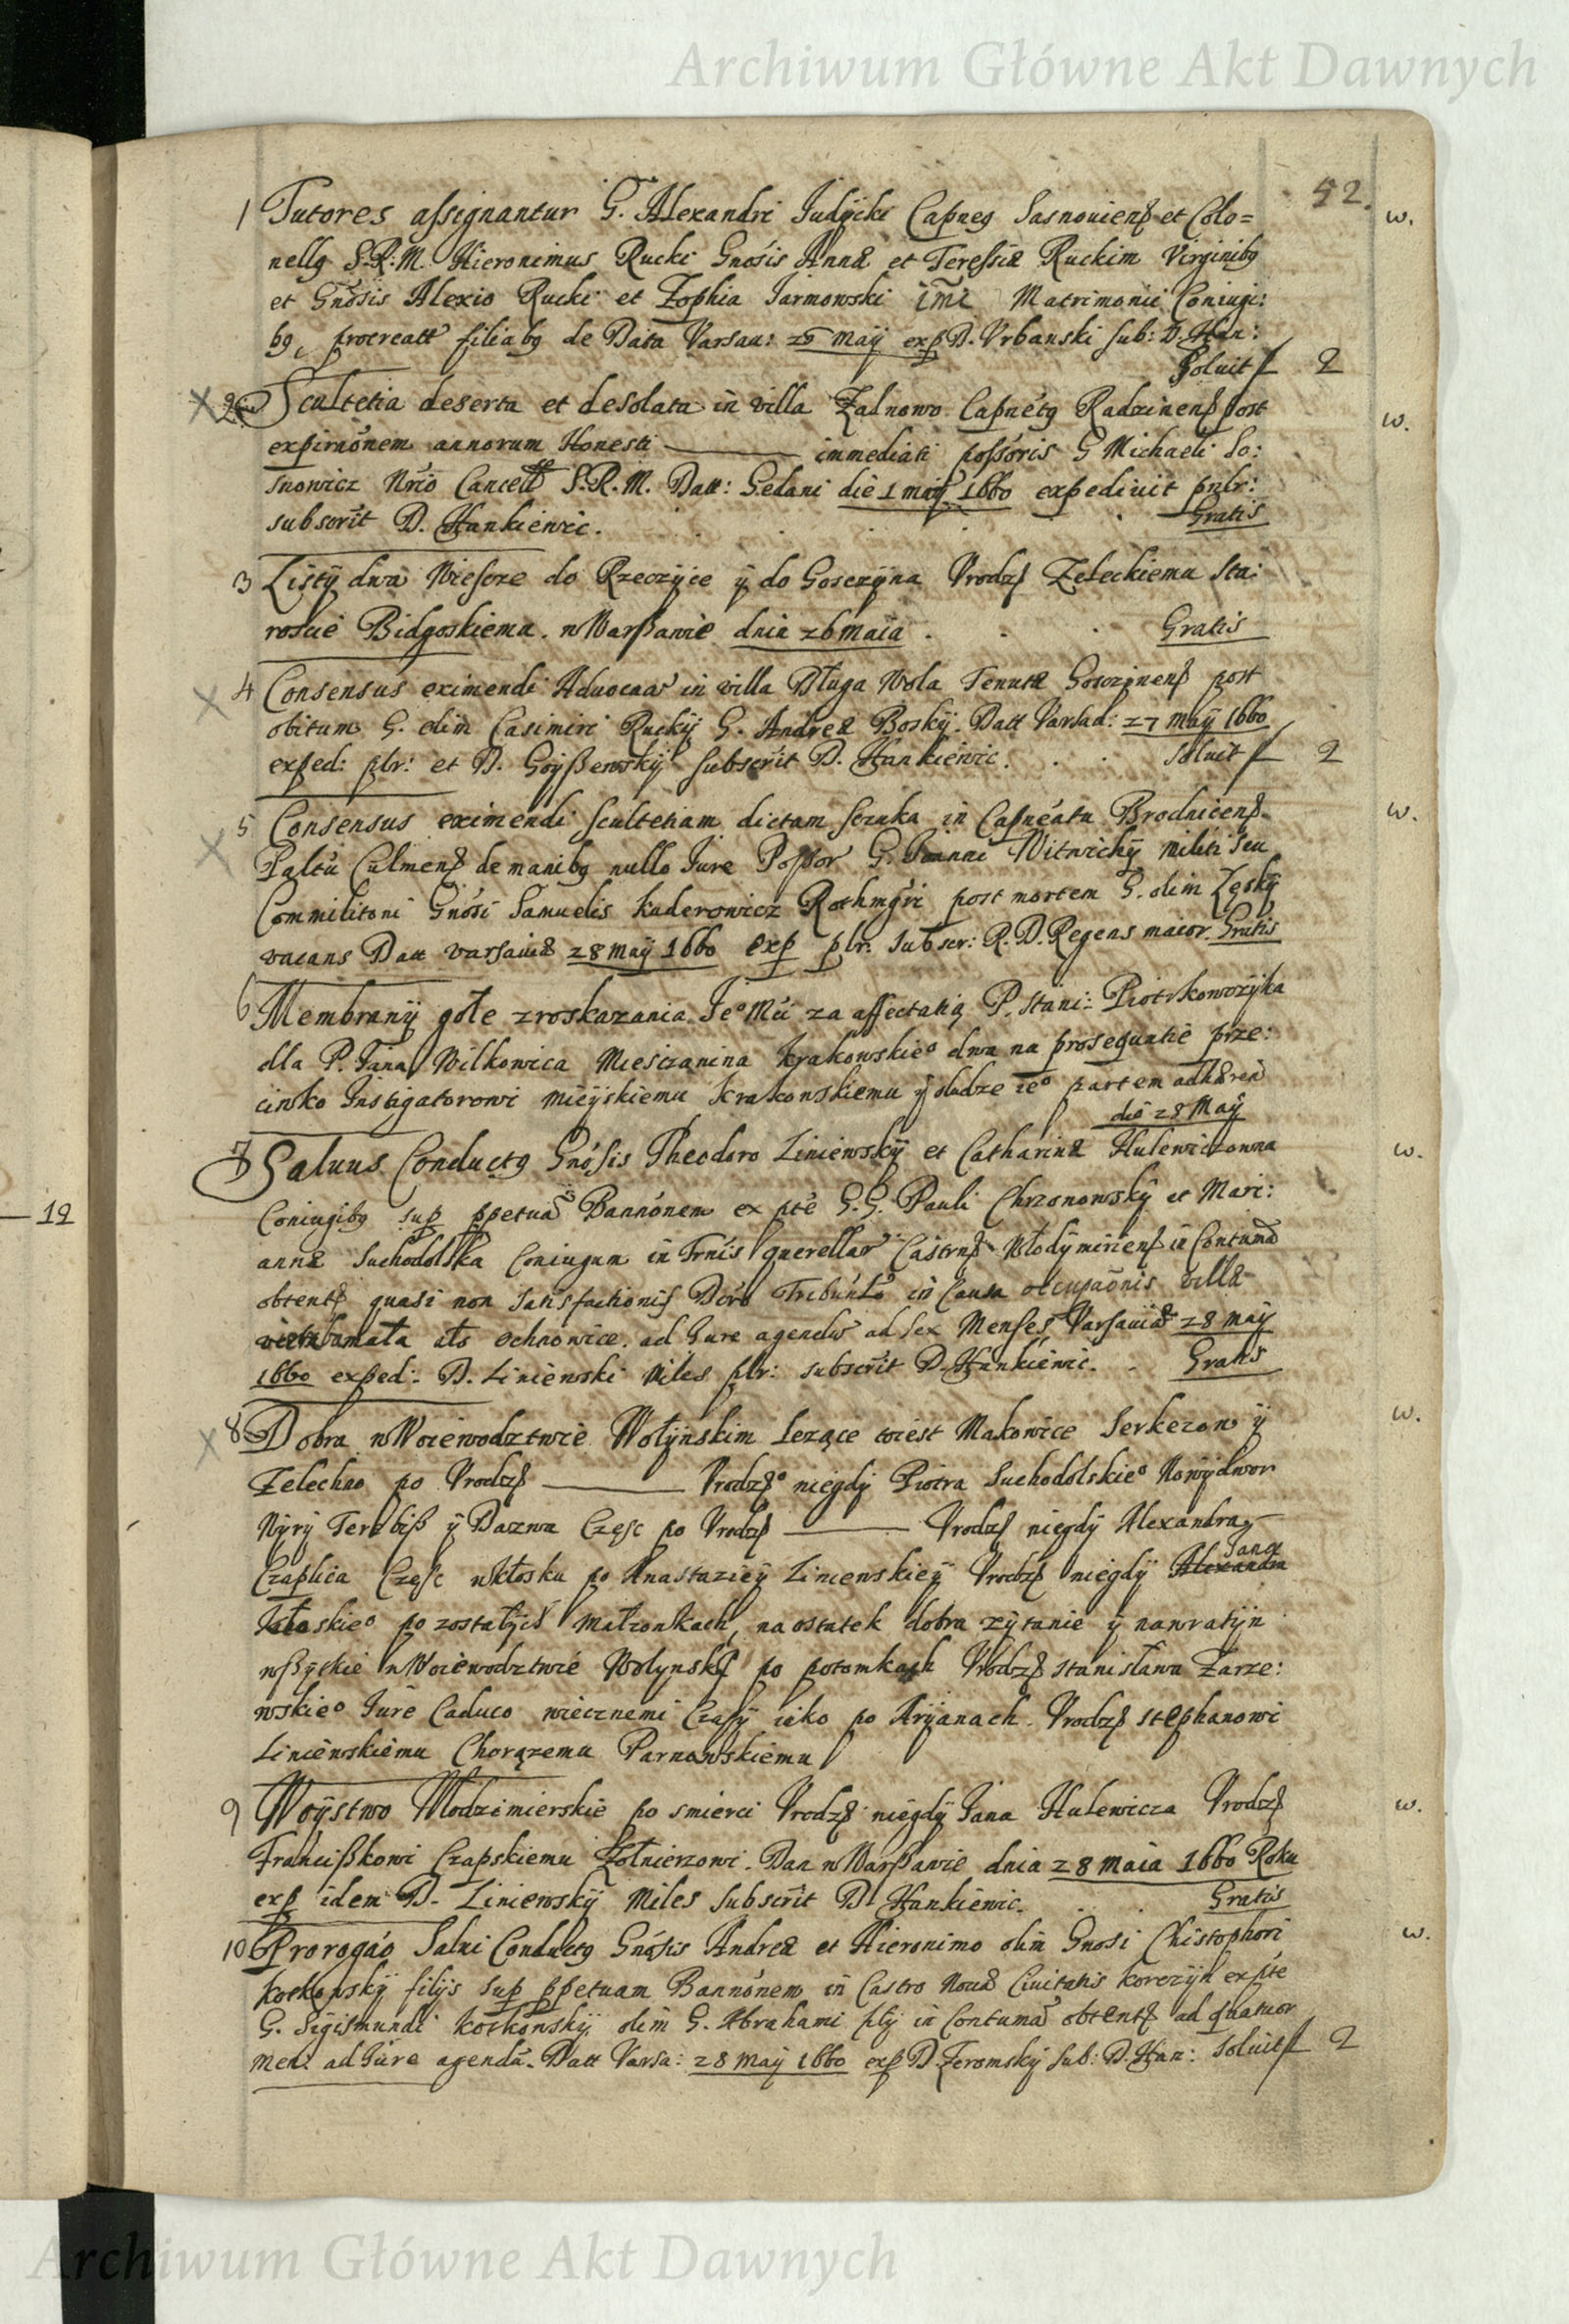 Archiwum Główne Akt Dawnych
52.
1 Tutores assignantur G. Alexandri Judÿcki Capneg Sasnouiens et Colo=
nellg S.R.M. Hieronimus Rucki Gnósis Annæ et Teressiæ Ruckim Virginibg
et Gnósis Alexio Rucki et Zophia Jarmowski imi Matrimonii Coniugi:
bg, procreatt filiabg de Data Varsau: 26 maÿ exp D. Vrbanski sub: D. Han:
Soluit f 2
2 Scultetia deserta et desolata in villa Zalnowo Capnétg Radzinens post
expirnónem annorum Honesti ——— immediati possóris G Michaeli So:
snowicz Nrio Cancell S.R.M. Datt: Gedani die 1 maÿ 1660 expediuit pnlr:
subscrit D. Hankiewic. Gratis
3 Listÿ dwa Wiescze do Rzeczÿce ÿ do Gosczÿna Vrodz Zeleckiemu Sta:
roscie Bidgoskiemu. w Warßawie dnia 26 maia. Gratis
4 Consensus eximendi Aduocaa in villa Długa Wola Tenutæ Gosczÿnens post
obitum G. olim Casimiri Ruckÿ G. Andreæ Boskÿ. Datt Varsau: 27 maÿ 1660
exped: plr: et D. Goÿßewskÿ subscrit D. Hankiewic. Soluit f 2
5 Consensus eximendi scultetiam dictam Sczuka in Capneátu Brodnicens.
Paltu Culmens de manibg nullo Jure Possor G. Joanni Witwickÿ militi seu
Commilitoni Gnósi Samuelis Kaderowicz Rothmgri post mortem G. olim Zęskÿ
vacans Datt varsauiæ 28 maÿ 1660 exp plr: subscr: R.D. Regens maior. Gratis
6 Membranÿ gołe z roskazania Jeo Mci za affectatią P. Stani: Piotrkowczÿka
dla P. Jana Wilkowica Miesczanina Krakowskieo dwa na prosequutie prze:
ciwko Instigatorowi mieÿskiemu Krakowskiemu ÿ słudze ieo partem adhæren
die 28 Maÿ
7 Saluus Conductg Gnósis Theodoro Liniewskÿ et Catharinæ Hulewiczowna
Coniugibg sup ppetuá Bannónem ex pte G.G. Pauli Chrzonowskÿ et Mari:
annæ Suchodolska Coniugum in Trnis querellar Castrens Włodÿmiriens in Contuma
obtents quasi non satisfactionis Dcro Tribunto in Causa occupaónis villæ
ats Ochnowice. ad Jure agendu ad sex Menses Varsauiæ 28 maÿ
1660 exped: D. Liniewski Miles plr: subscrit D. Hankiewic. Gratis
8 Dobra w Woiewodztwie Wołÿnskim Lezące wiest Makowice Serkezow ÿ
Zelechno po Vrodz ——— Vrodzo niegdÿ Piotra Suchodolskieo Nowÿdwor
Nÿrÿ Terebiß ÿ Dazwa Częsc po Vrodz ——— Vrodz niegdÿ Alexandra
Czaplica Częsc w Kłosku po Anastazieÿ Liniewskieÿ Vrodz niegdÿ Alexandra Jana
Kłoskieo pozostałÿch małzonkach, na ostatek dobra Zÿtanie ÿ nawratÿn
wßÿtkie w Woiewodztwie Wolynsk po potomkach Vrodz Stanisława Zarze:
wskieo Jure Caduco wiecznemi Czasÿ iako po Arÿanach. Vrodz Stephanowi
Liniewskiemu Chorązemu Parnawskiemu
9 Woÿstwo Włodzimierskie po smierci Vrodz niegdÿ Jana Hulewicza Vrodz
Francißkowi Czapskiemu Zołnierzowi. Dan w Warßawie dnia 28 maia 1660 Roku
exp idem D. Liniewskÿ Miles subscrit D. Hankiewic. Gratis
10 Prorogáo Salui Conductg Gnósis Andreæ et Hieronimo olim Gnosi Christophori
Kotkowskÿ filÿs sup ppetuam Bannónem in Castro Nouæ Ciuitatis Korczÿn ex pte
G. Sigismundi Kotkowskÿ olim G. Abrahami flÿ in Contuma obtents ad quatuor
men. ad Jure agendu. Datt Varsa: 28 maÿ 1660 exp D. Zeromskÿ sub: D. Han: Soluit f 2
w.
w.
w.
w.
w.
w.
w.
12
Archiwum Główne Akt Dawnych